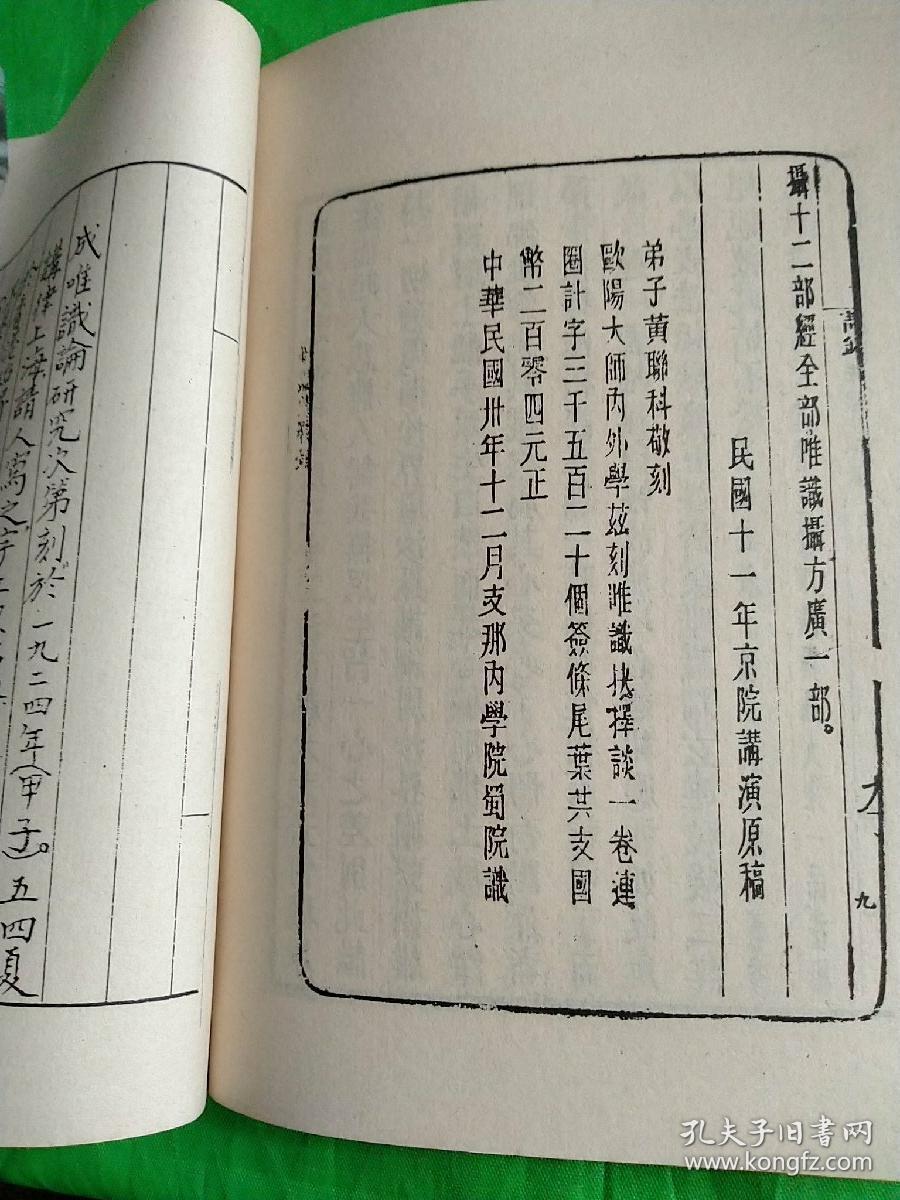 攝十二部經全部唯識攝方廣一部。
民國十一年京院講演原稿
弟子黃聯科敬刻
歐陽大師內外學茲刻唯識抉擇談一卷連
圈計字三千五百二十個簽條尾葉共支國
幣二百零四元正
中華民國卅年十二月支那內學院蜀院識
九
成唯識論研究次第刻於一九二四年(甲子)。五四夏
上海請人寫之
孔夫子旧书网
www.kongfz.com